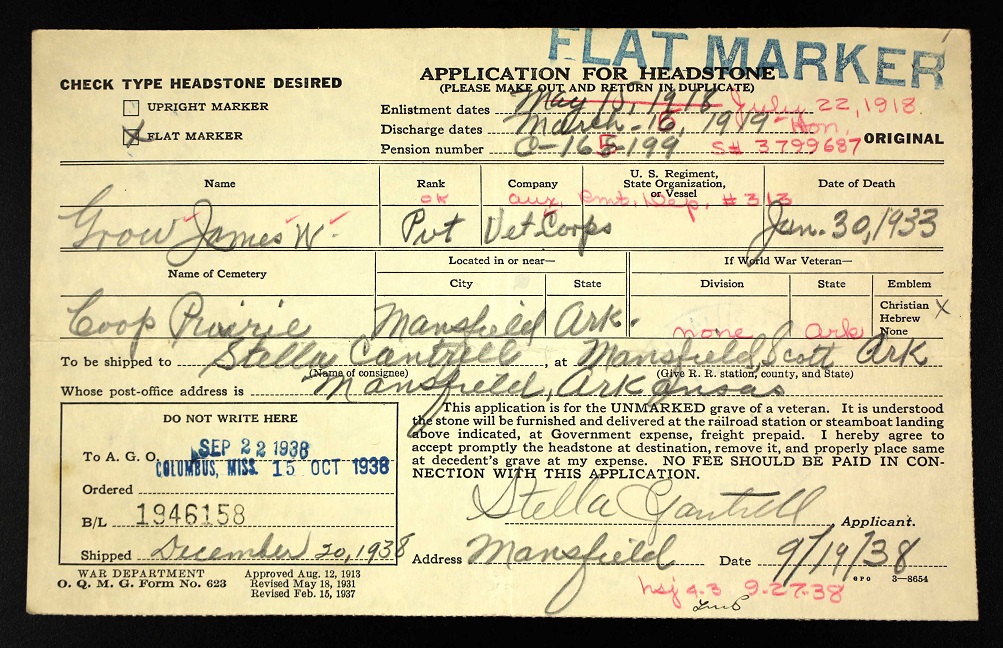 FLAT MARKER
CHECK TYPE HEADSTONE DESIRED
UPRIGHT MARKER
X FLAT MARKER
APPLICATION FOR HEADSTONE
(PLEASE MAKE OUT AND RETURN IN DUPLICATE)
Enlistment dates May 15, 1918 July 22, 1918.
Discharge dates March - 16, 1919 - Hon.
Pension number C-165-199 S# 3799687
ORIGINAL
Name Rank Company U. S. Regiment, State Organization, or Vessel Date of Death
ok aux. Rmt. Dep. # 313
Grow James W. Pvt Vet Corps Jan. 30, 1933
Name of Cemetery Located in or near— If World War Veteran—
City State Division State Emblem
Coop Prairie Mansfield Ark. none Ark
Christian X
Hebrew
None
To be shipped to Stella Cantrell, at Mansfield, Scott Ark
(Name of consignee) (Give R. R. station, county, and State)
Whose post-office address is Mansfield, Arkansas
DO NOT WRITE HERE
To A. G. O. SEP 22 1938
COLUMBUS, MISS. 15 OCT 1938
Ordered
B/L 1946158
Shipped December 20, 1938
This application is for the UNMARKED grave of a veteran. It is understood
the stone will be furnished and delivered at the railroad station or steamboat landing
above indicated, at Government expense, freight prepaid. I hereby agree to
accept promptly the headstone at destination, remove it, and properly place same
at decedent's grave at my expense. NO FEE SHOULD BE PAID IN CON-
NECTION WITH THIS APPLICATION.
Stella Cantrell
Applicant.
Address Mansfield Date 9/19/38
WAR DEPARTMENT
O. Q. M. G. Form No. 623
Approved Aug. 12, 1913
Revised May 18, 1931
Revised Feb. 15, 1937
GPO 3—8654
hsj 4-3 9-27-38